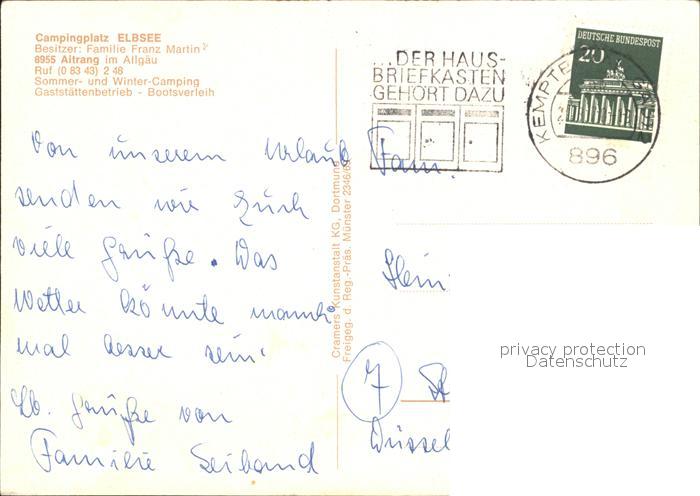 Campingplatz ELBSEE
Besitzer: Familie Franz Martin
8955 Aitrang im Allgäu
Ruf (0 83 43) 2 48
Sommer- und Winter-Camping
Gaststättenbetrieb - Bootsverleih
Von unserem Urlaub
senden wir Euch
viele Grüße. Das
Wetter könnte manch
mal besser sein.
Lb. Grüße von
Familie Seiband
Cramers Kunstanstalt KG, Dortmund
Freigeg. d. Reg.-Präs. Münster 2346/6
...DER HAUS-
BRIEFKASTEN
GEHÖRT DAZU
DEUTSCHE BUNDESPOST
20
KEMPTE
896
Fam.
Hein
7 St
Düssel
privacy protection
Datenschutz